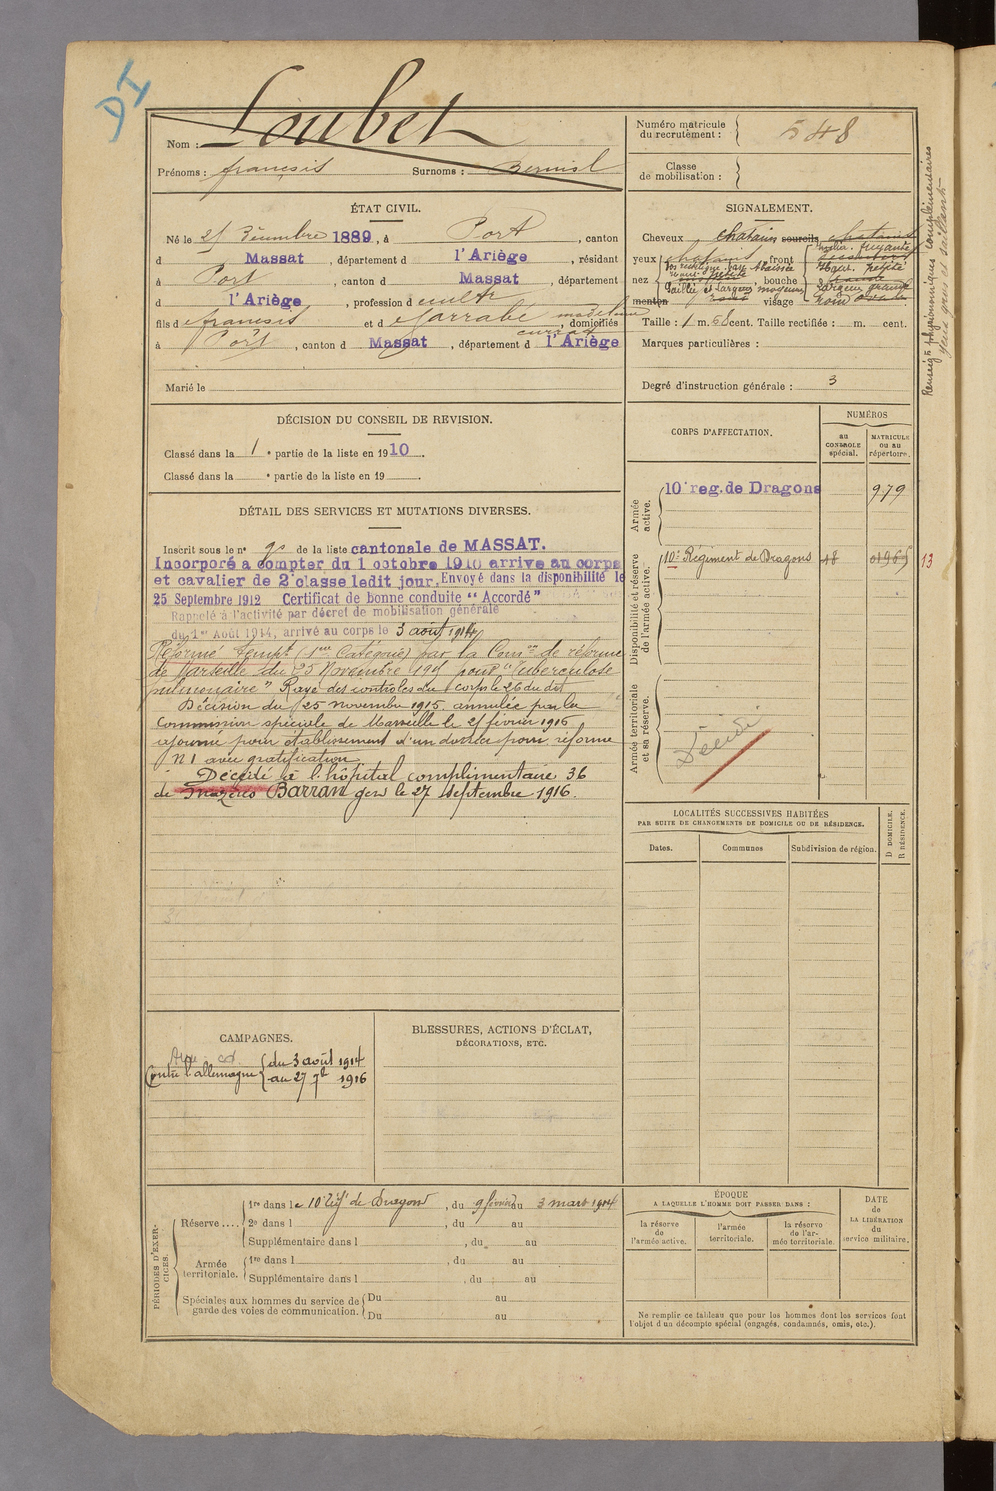 DI
Loubet
Nom :
Prénoms : françois Surnoms :
Numéro matricule
du recrutement : 548
Classe
de mobilisation :
ÉTAT CIVIL.
Né le 25 Décembre 1889, à Port, canton
d Massat, département d l'Ariège, résidant
à Port, canton d Massat, département
d l'Ariège, profession d cultr
fils d françois et d Jarrabé madeleine, domiciliés
à Port, canton d Massat, département d l'Ariège
Marié le
SIGNALEMENT.
Cheveux chatains sourcils chatains
yeux front
nez bouche
menton visage
Taille : 1 m. 58 cent. Taille rectifiée : m. cent.
Marques particulières :
Degré d'instruction générale : 3
Renseigts physionomiques complémentaires
Yeux gros et saillants
DÉCISION DU CONSEIL DE REVISION.
Classé dans la 1e partie de la liste en 1910.
Classé dans la e partie de la liste en 19 .
DÉTAIL DES SERVICES ET MUTATIONS DIVERSES.
Inscrit sous le n° de la liste cantonale de MASSAT.
Incorporé a compter du 1 octobre 1910 arrive au corps
et cavalier de 2e classe ledit jour. Envoyé dans la disponibilité le
25 Septembre 1912 Certificat de bonne conduite "Accordé"
Rappelé à l'activité par décret de mobilisation générale
du 1er Août 1914, arrivé au corps le 3 août 1914
Réformé tempt (1ere Catégorie) par la Comon de réforme
de Marseille du 25 Novembre 1915 pour "Tuberculose
pulmonaire" Rayé des contrôles du corps le 26 du dit
Décision du 25 novembre 1915 annulée par la
Commission spéciale de Marseille le 21 février 1916
ajourné pour établissement d'un dossier pour réforme
N° 1 avec gratification
Décédé à l'hôpital complimentaire 36
de Mazères Barran gers le 27 septembre 1916.
CORPS D'AFFECTATION.
NUMÉROS
au
CONTROLE
spécial.
MATRICULE
OU AU
répertoire.
Armée
active.
10e reg. de Dragons 979
Disponibilité et réserve
de l'armée active.
10e Régiment de Dragons 48 01965 13
Armée territoriale
et sa réserve.
Décédé
LOCALITÉS SUCCESSIVES HABITÉES
PAR SUITE DE CHANGEMENTS DE DOMICILE OU DE RÉSIDENCE.
Dates. Communes Subdivision de région.
D DOMICILE.
R RÉSIDENCE.
CAMPAGNES.
Contre l'allemagne du 3 août 1914
au 27 7bre 1916
BLESSURES, ACTIONS D'ÉCLAT,
DÉCORATIONS, ETC.
PÉRIODES D'EXERCICES.
Réserve .... 1re dans le 10e Regt de Dragons, du 9 février au 3 mars 1914
2e dans l , du au
Supplémentaire dans l , du au
Armée
territoriale. 1re dans l , du au
Supplémentaire dans l , du au
Spéciales aux hommes du service de
garde des voies de communication. Du au
Du au
ÉPOQUE
A LAQUELLE L'HOMME DOIT PASSER DANS :
la réserve
de
l'armée active.
l'armée
territoriale.
la réserve
de l'ar-
mée territoriale.
DATE
de
LA LIBÉRATION
du
service militaire.
Ne remplir ce tableau que pour les hommes dont les services font
l'objet d'un décompte spécial (engagés, condamnés, omis, etc.).